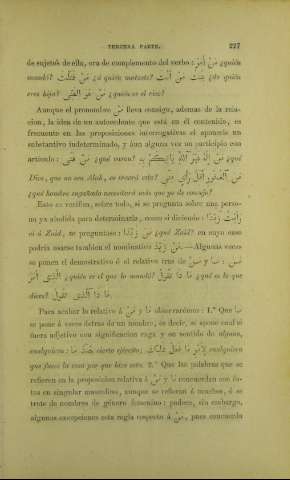 TERCERA PARTE. 227
de sujeto de ella, ora de complemento del verbo: مَنْ أَمَرَ ¿quién
mandó? مَنْ قَتَلْتَ ¿á quién mataste? بِنْتُ مَنْ أَنْتِ ¿de quién
eres hija? مَنْ هُوَ الغَنِىُّ ¿quién es el rico?
Aunque el pronombre مَنْ lleva consigo, ademas de la rela-
cion, la idea de un antecedente que está en él contenido, es
frecuente en las proposiciones interrogativas el aponerle un
substantivo indeterminado, y áun alguna vez un participio con
artículo: مَنْ فَتًى ¿qué varon? مَنْ إِلٰهٌ غَيْرُ ٱللّٰهِ يَأْتِيكُمْ بِهِ ¿qué
Dios, que no sea Aláh, os traerá esto?
¿qué hombre engañado necesitará más que yo de consejo?
Esto se verifica, sobre todo, si se pregunta sobre una perso-
na ya aludida para determinarla, como si diciendo: رَأَيْتُ زَيْدًا
ví á Zaid, se preguntase: مَنْ زَيْدًا ¿qué Zaid? en cuyo caso
podria usarse tambien el nominativo مَنْ زَيْدٌ.—Algunas veces
se ponen el demostrativo ó el relativo tras de مَا y مَنْ:
¿quién es el que lo mandó? مَا ذَا تَقُولُ ó مَا ذَا ٱلَّذِى تَقُولُ ¿qué es lo que
dices?
Para acabar la relativo á مَنْ y مَا observarémos: 1.º Que مَا
se pone á veces detras de un nombre, es decir, se apone cual si
fuera adjetivo con significacion vaga y en sentido de alguno,
cualquiera: cierto ejército; لِأَمْرٍ مَا فَعَلَ ذٰلِكَ cualquiera
que fuese la cosa por que hizo esto. 2.º Que las palabras que se
refieren en la proposicion relativa á مَنْ y مَا concuerdan con és-
tos en singular masculino, aunque se refieran á muchos, ó se
trate de nombres de género femenino: padece, sin embargo,
algunas excepciones esta regla respecto á مَنْ, pues concuerda